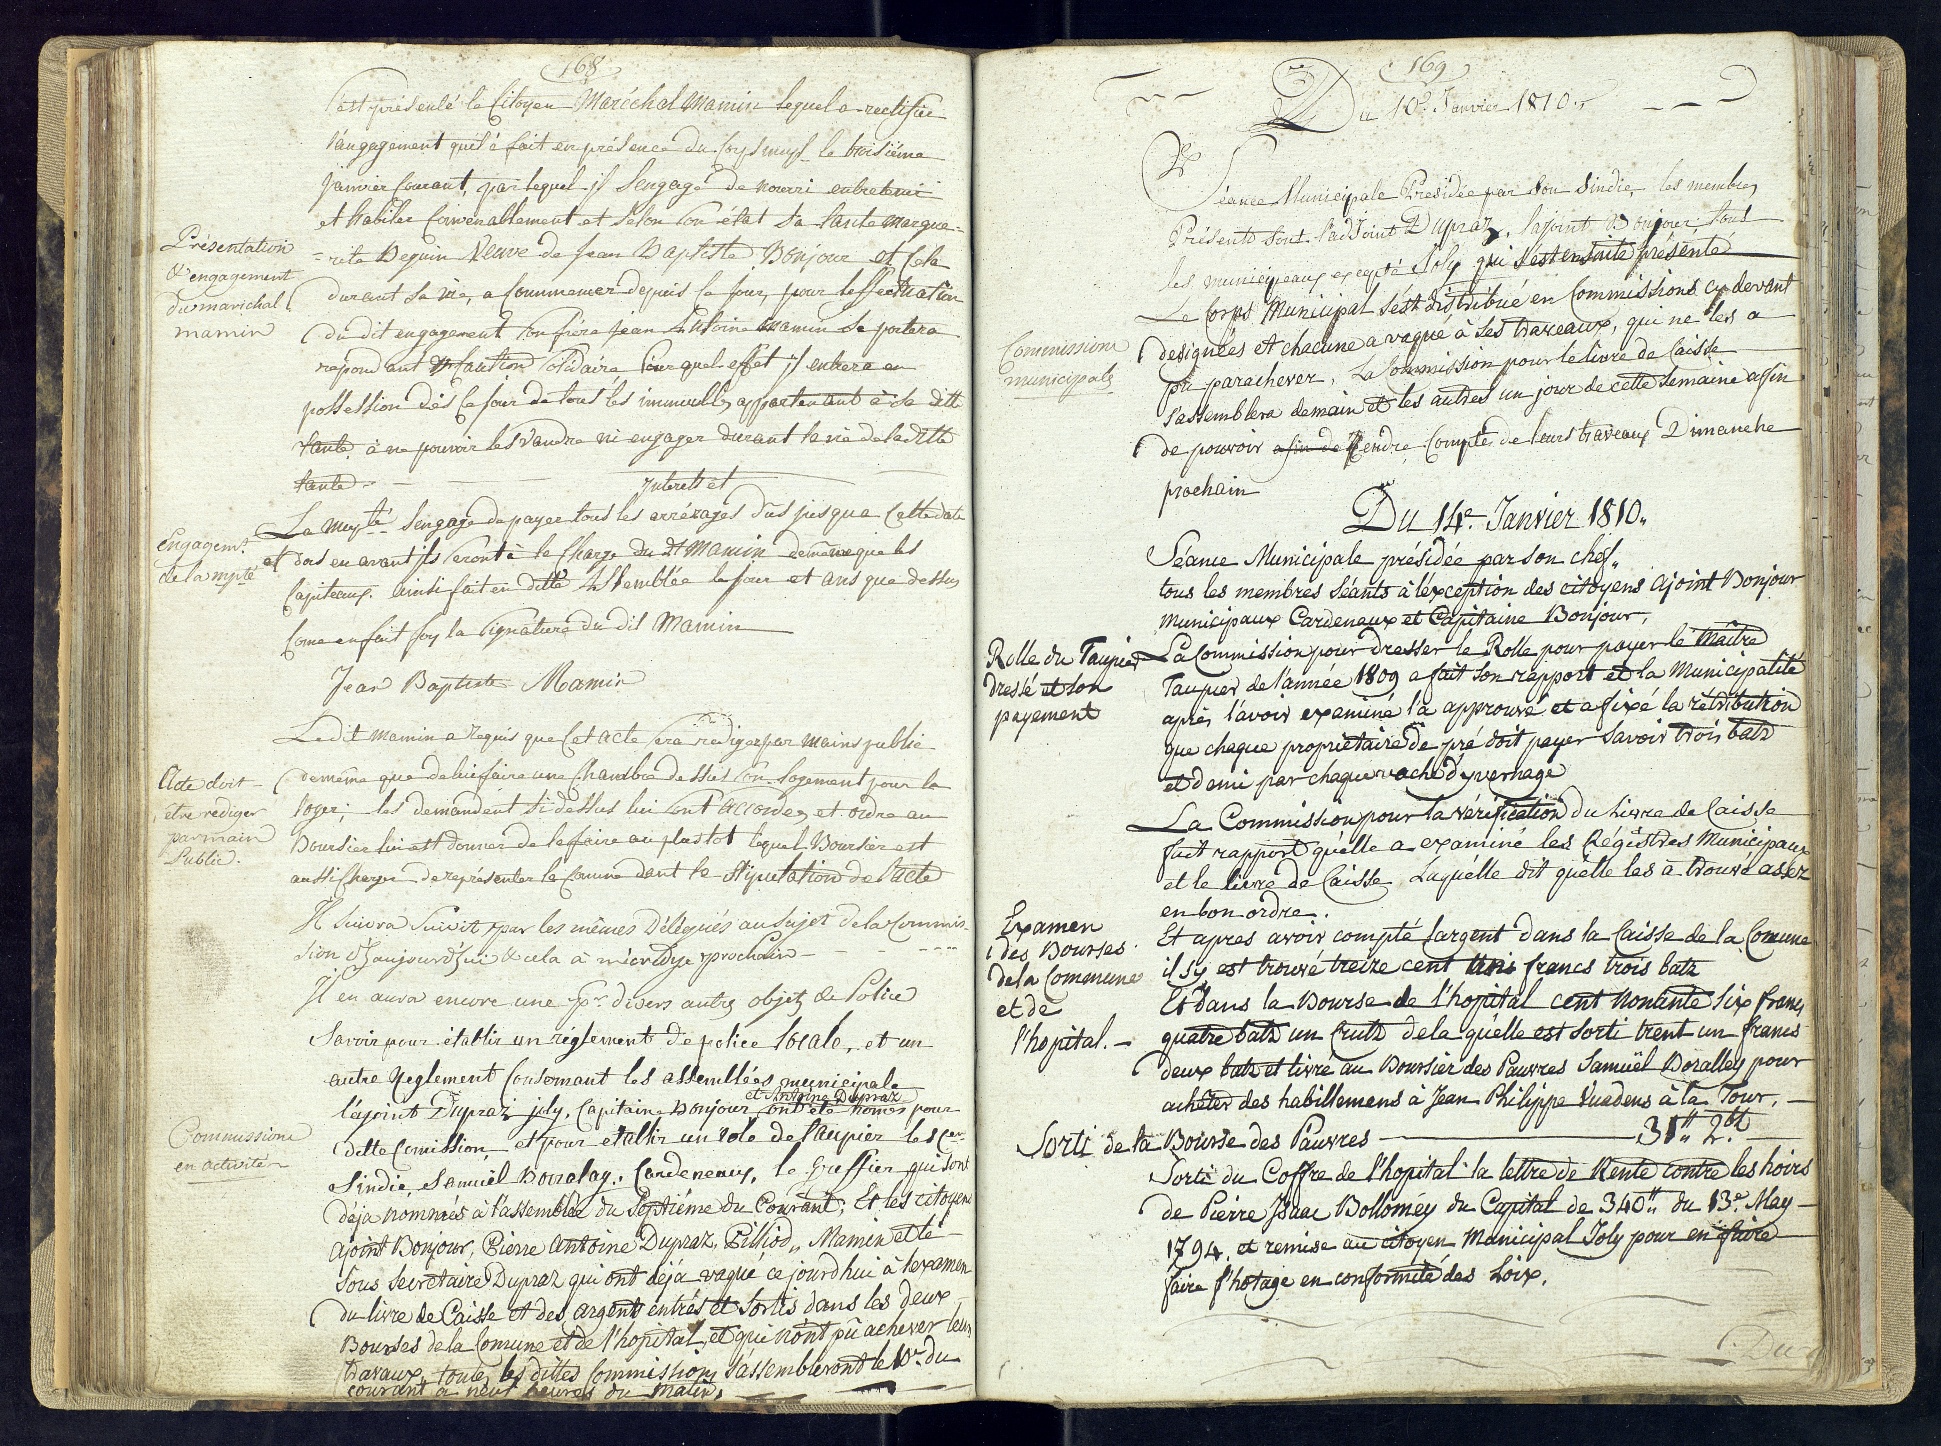 168
S'est présenté le Citoyen Maréchal Mamin lequel a rectifié
l'angagement qu'il à fait en présence du Corps mupl le troisiéme
Janvier Courant, par lequel il S'engage de nourri entretenir
et habiller Convenablement et Selon Son état Sa tante Margue=
Présentation
d'engagement
du marichal
mamin
=rite Deguin Veuve de Jean Baptiste Bonjour et Cela
durant Sa vie, a Commencer depuis Ce jour, pour l'effectuation
du dit engagement Son frére Jean Antoine Mamin Se portera
repondant et Caution Solidaire Pour quel effet il entrera en
possession dés Ce jour de tous les immeubles appartenant à Sa ditte
tante à ne pouvoir les vandre ni engager durant la vie de la ditte
tante
Interets et
Engagemt
de la mpté
La Mupté S'engage de payer tous les arrérages dûs jusqua Cette date
et dors en avant ils seront à la Charge du dt Mamin demême que les
Capiteaux. ainsi fait en ditte Assemblée le jour et ans que dessus
Come en fait foy la Signature du dit Mamin
Jean Baptiste Mamin
Le dit Mamin a requis que Cet acte sera rediger par mains public
Acte doit
etre rediger
par main
Public.
demême que de lui faire une Chambre dessus Son logement pour la
loger; les demandent Si dessus lui sont accordés et ordre au
Boursier lui est donner de le faire au plustot lequel Boursier est
aussi Charger de représenter la Comune dant la Stipulation de l'acte
Il Suivra Suivit par les mêmes Délégués au Sujet de la Commis-
sion d'aujourd'hui & cela à mécredye prochain
Il en aura encore une pr. divers autres objets de Police
Savoir pour établir un réglement de police locale, et un
autre Reglement Consernant les assemblées municipale
et Antoine Dupraz
l'ajoint Dupraz joly, Capitaine Bonjour ont été només pour
Commissions
en activité
ditte Comission, et pour etablir un role de Taupier les Cer.
Sindic, Samuël Doralay, Cardeneaux, le Greffier qui sont
déja nommés à l'assemblée du Séptiéme du Courant; Et les citoyens
ajoint Bonjour, Pierre Antoine Dupraz, Pilliod, Mamin et le
Sous Secretaire Dupraz qui ont déja vaqué ce jourd'hui à l'examen
du livre de Caisse et des argents entrés et Sortis dans les deux
Bourses de la Comune et de l'hopital, et qui n'ont pû achever leurs
travaux, toute les dittes Commissions S'assembleront le 10e. du
courant à neuf heures du Matin,
169
Du 10e. Janvier 1810.
Séance Municipale Présidée par Son Sindic, les membres
Présents Sont l'adjoint Dupraz, l'ajoint Bonjour tous
les municipeaux excepté Joly qui S'est ensuite présenté
Commissions
municipales
Le Corps Municipal S'est distribué en Commissions cy devant
designées et chacune a vaqué à Ses traveaux, qui ne les a
pû parachever, La Commission pour le livre de Caisse
S'assemblera demain et les autres un jour de cette Semaine affin
de pouvoir afin de Rendre Compte de leurs traveaux Dimanche
prochain
Du 14e. Janvier 1810.
Séance Municipale présidée par son chéf,
tous les membres Séants à l'éxception des citoyens Ajoint Bonjour
municipaux Cardenaux et Capitaine Bonjour,
Rolle du Taupier
dressé et Son
payement
La Commission pour dresser le Rolle pour payer le Maître
Taupier de l'année 1809 a fait Son rapport et la Municipalité
aprés l'avoir examiné l'a approuvé et a fixé la rétribution
que chaque proprietaire de pré doit payer Savoir trois batz
et demi par chaque vache d'yvernage
La Commission pour la vérification du Livre de Caisse
fait rapport qu'elle a examiné les Régistres Municipaux
et le livre de Caisse Laquélle dit qu'elle les à trouvé assez
en bon ordre.
Examen
des Bourses
de la Commune
et de
l'hopital.-
Et apres avoir compté l'argent dans la Caisse de la Comune
il S'y est trouvé treize cent trois francs trois batz
Et dans la Bourse de l'hopital cent Nonante Six francs
quatre batz un Crutz de la quélle est Sorti trent un francs
deux batz et livré au Boursier des Pauvres Samuël Doralley pour
achêter des habillemens à Jean Philippe Vuadens à la Tour,
Sorti de la Bourse des Pauvres 31" 2bz
Sorti du Coffre de l'hopital la lettre de Rente contre les hoirs
de Piérre Isaac Bolloméy du Capital de 340" du 13e. May
1794, et remise au citoyen Municipal Joly pour en faire
faire l'hotage en conformité des Loix.
Du